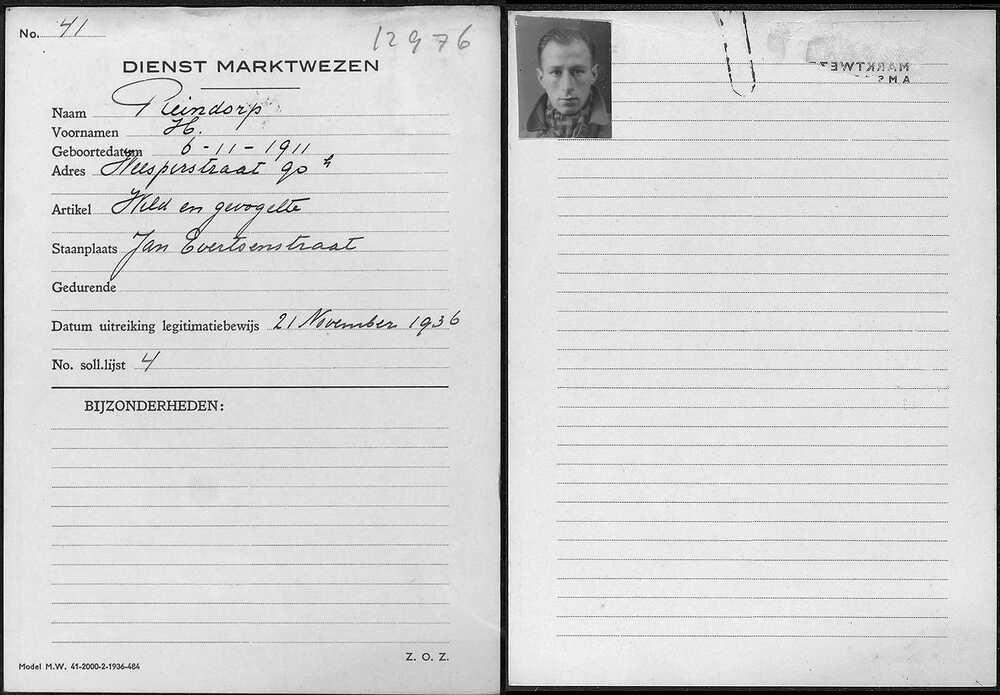 No. 41
12976
DIENST MARKTWEZEN
Naam Reindorp
Voornamen H.
Geboortedatum 6-11-1911
Adres Weesperstraat 90 h
Artikel Wild en gevogelte
Staanplaats Jan Evertsenstraat
Gedurende
Datum uitreiking legitimatiebewijs 21 November 1936
No. soll.lijst 4
BIJZONDERHEDEN:
Model M.W. 41-2000-2-1936-484
Z. O. Z.
MARKTWEZE